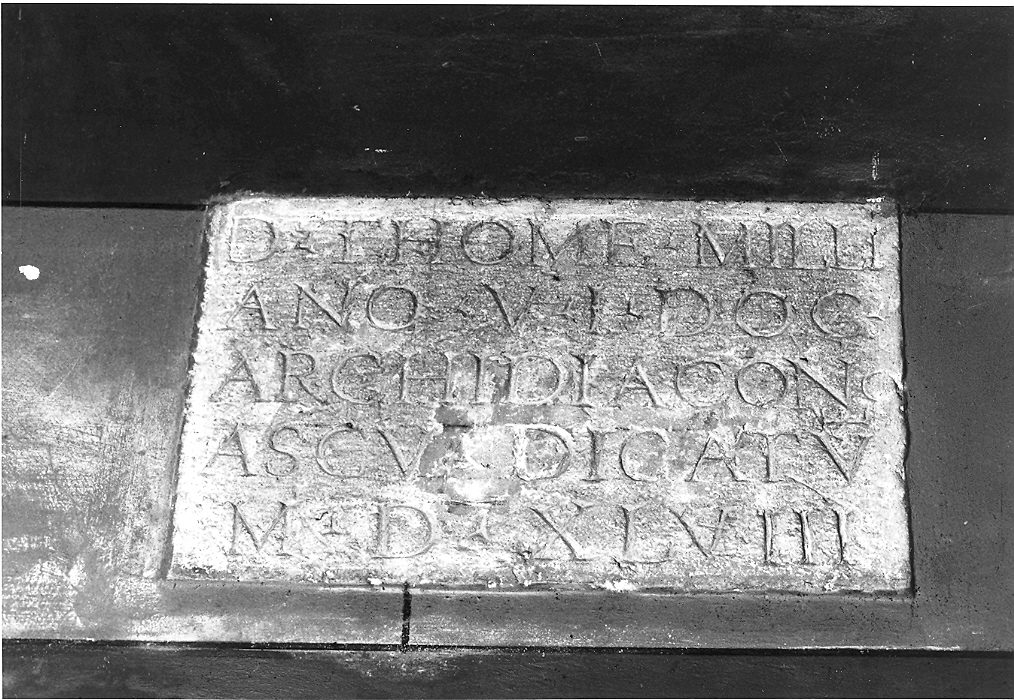 D · THOME · MILLI
ANO · V · I · DOC ·
ARCHIDIACONO
ASCV · DICATV
M · D · XLVIII